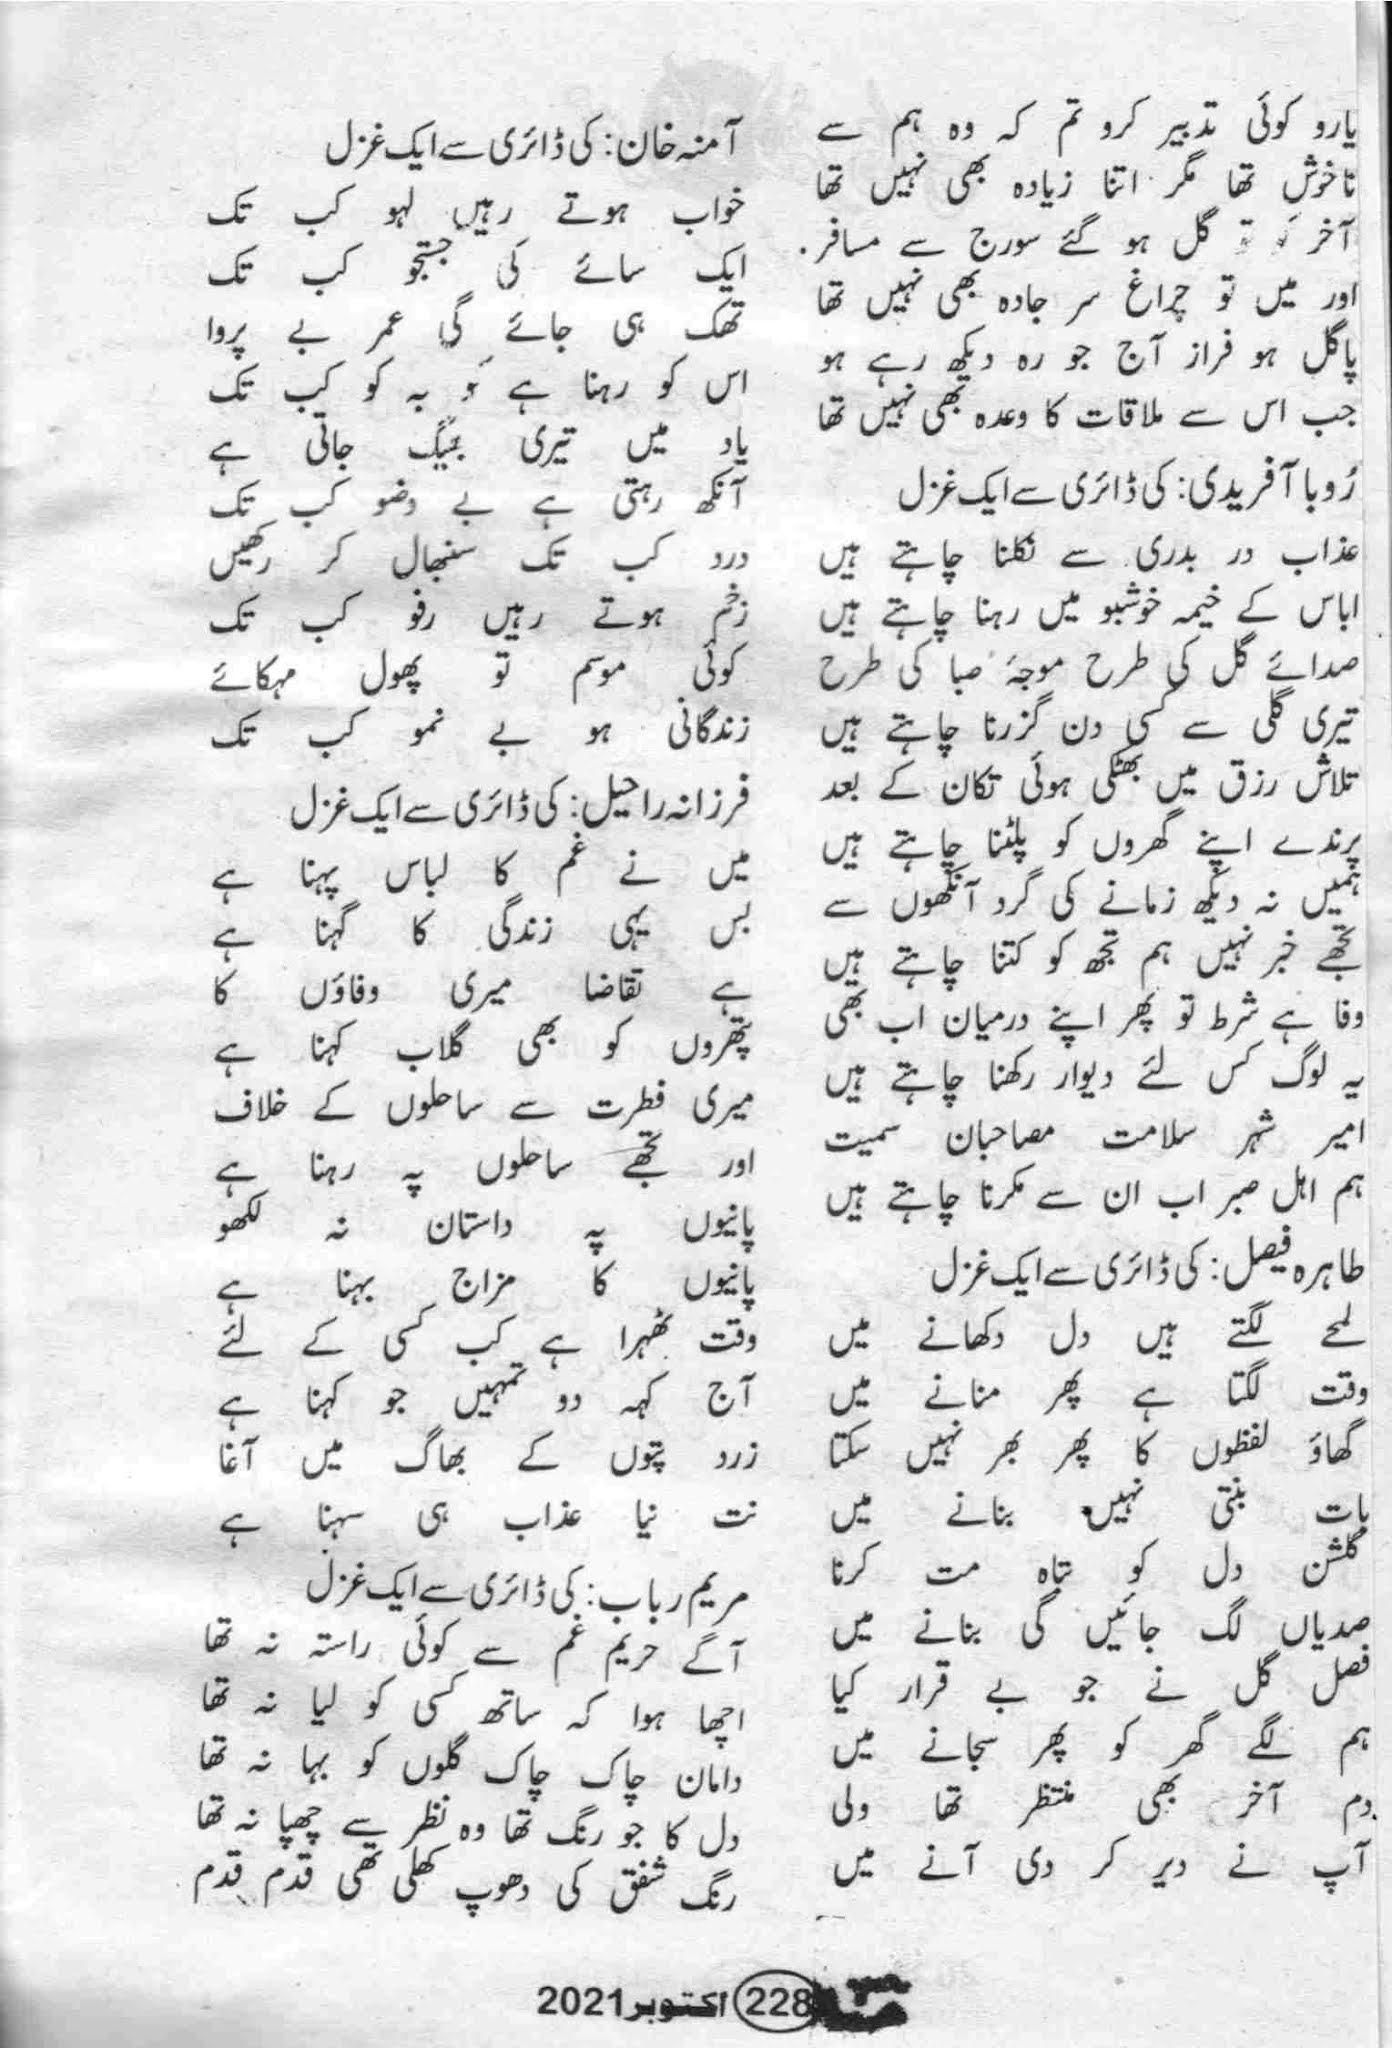 یارو کوئی تدبیر کرو تم کہ وہ ہم سے
ناخوش تھا مگر اتنا زیادہ بھی نہیں تھا
آخر گل ہو گئے سورج سے مسافر
اور میں تو چراغ سر جادہ بھی نہیں تھا
پاگل ہو فراز آج جو رہ دیکھ رہے ہو
جب اس سے ملاقات کا وعدہ بھی نہیں تھا
رُوبا آفریدی: کی ڈائری سے ایک غزل
عذاب در بدری سے نکلنا چاہتے ہیں
اباس کے خیمہ خوشبو میں رہنا چاہتے ہیں
صدائے گل کی طرح موجۂ صبا کی طرح
تیری گلی سے کسی دن گزرنا چاہتے ہیں
تلاش رزق میں بھٹکی ہوئی تکان کے بعد
پرندے اپنے گھروں کو پلٹنا چاہتے ہیں
ہمیں نہ دیکھ زمانے کی گرد آنکھوں سے
تجھے خبر نہیں ہم تجھ کو کتنا چاہتے ہیں
وفا ہے شرط تو پھر اپنے درمیان اب بھی
یہ لوگ کس لئے دیوار رکھنا چاہتے ہیں
امیر شہر سلامت مصاحبان سمیت
ہم اہل صبر اب ان سے مکرنا چاہتے ہیں
طاہرہ فیصل: کی ڈائری سے ایک غزل
لمحے لگتے ہیں دل دکھانے میں
وقت لگتا ہے پھر منانے میں
گھاؤ لفظوں کا پھر بھر نہیں سکتا
بات بنتی نہیں بنانے میں
گلشن دل کو تباہ مت کرنا
صدیاں لگ جائیں گی بنانے میں
فصل گل نے جو بے قرار کیا
ہم لگے گھر کو پھر سجانے میں
دم آخر بھی منتظر تھا ولی
آپ نے دیر کر دی آنے میں
آمنہ خان: کی ڈائری سے ایک غزل
خواب ہوتے رہیں لہو کب تک
ایک سائے کی جستجو کب تک
تھک ہی جائے گی عمر بے پروا
اس کو رہنا ہے کو بہ کو کب تک
یاد میں تیری بھیگ جاتی ہے
آنکھ رہتی ہے بے وضو کب تک
درد کب تک سنبھال کر رکھیں
زخم ہوتے رہیں رفو کب تک
کوئی موسم تو پھول مہکائے
زندگانی ہو بے نمو کب تک
فرزانہ راحیل: کی ڈائری سے ایک غزل
میں نے غم کا لباس پہنا ہے
بس یہی زندگی کا گہنا ہے
ہے تقاضا میری وفاؤں کا
پتھروں کو بھی گلاب کہنا ہے
میری فطرت سے ساحلوں کے خلاف
اور تجھے ساحلوں پہ رہنا ہے
پانیوں پہ داستان نہ لکھو
پانیوں کا مزاج بہنا ہے
وقت ٹھہرا ہے کب کسی کے لئے
آج کہہ دو تمہیں جو کہنا ہے
زرد پتوں کے بھاگ میں آغا
نت نیا عذاب ہی سہنا ہے
مریم رباب: کی ڈائری سے ایک غزل
آگے حریم غم سے کوئی راستہ نہ تھا
اچھا ہوا کہ ساتھ کسی کو لیا نہ تھا
دامان چاک چاک گلوں کو بہا نہ تھا
دل کا جو رنگ تھا وہ نظر سے چھپا نہ تھا
رنگ شفق کی دھوپ کھلی تھی قدم قدم
حنا 228 اکتوبر 2021